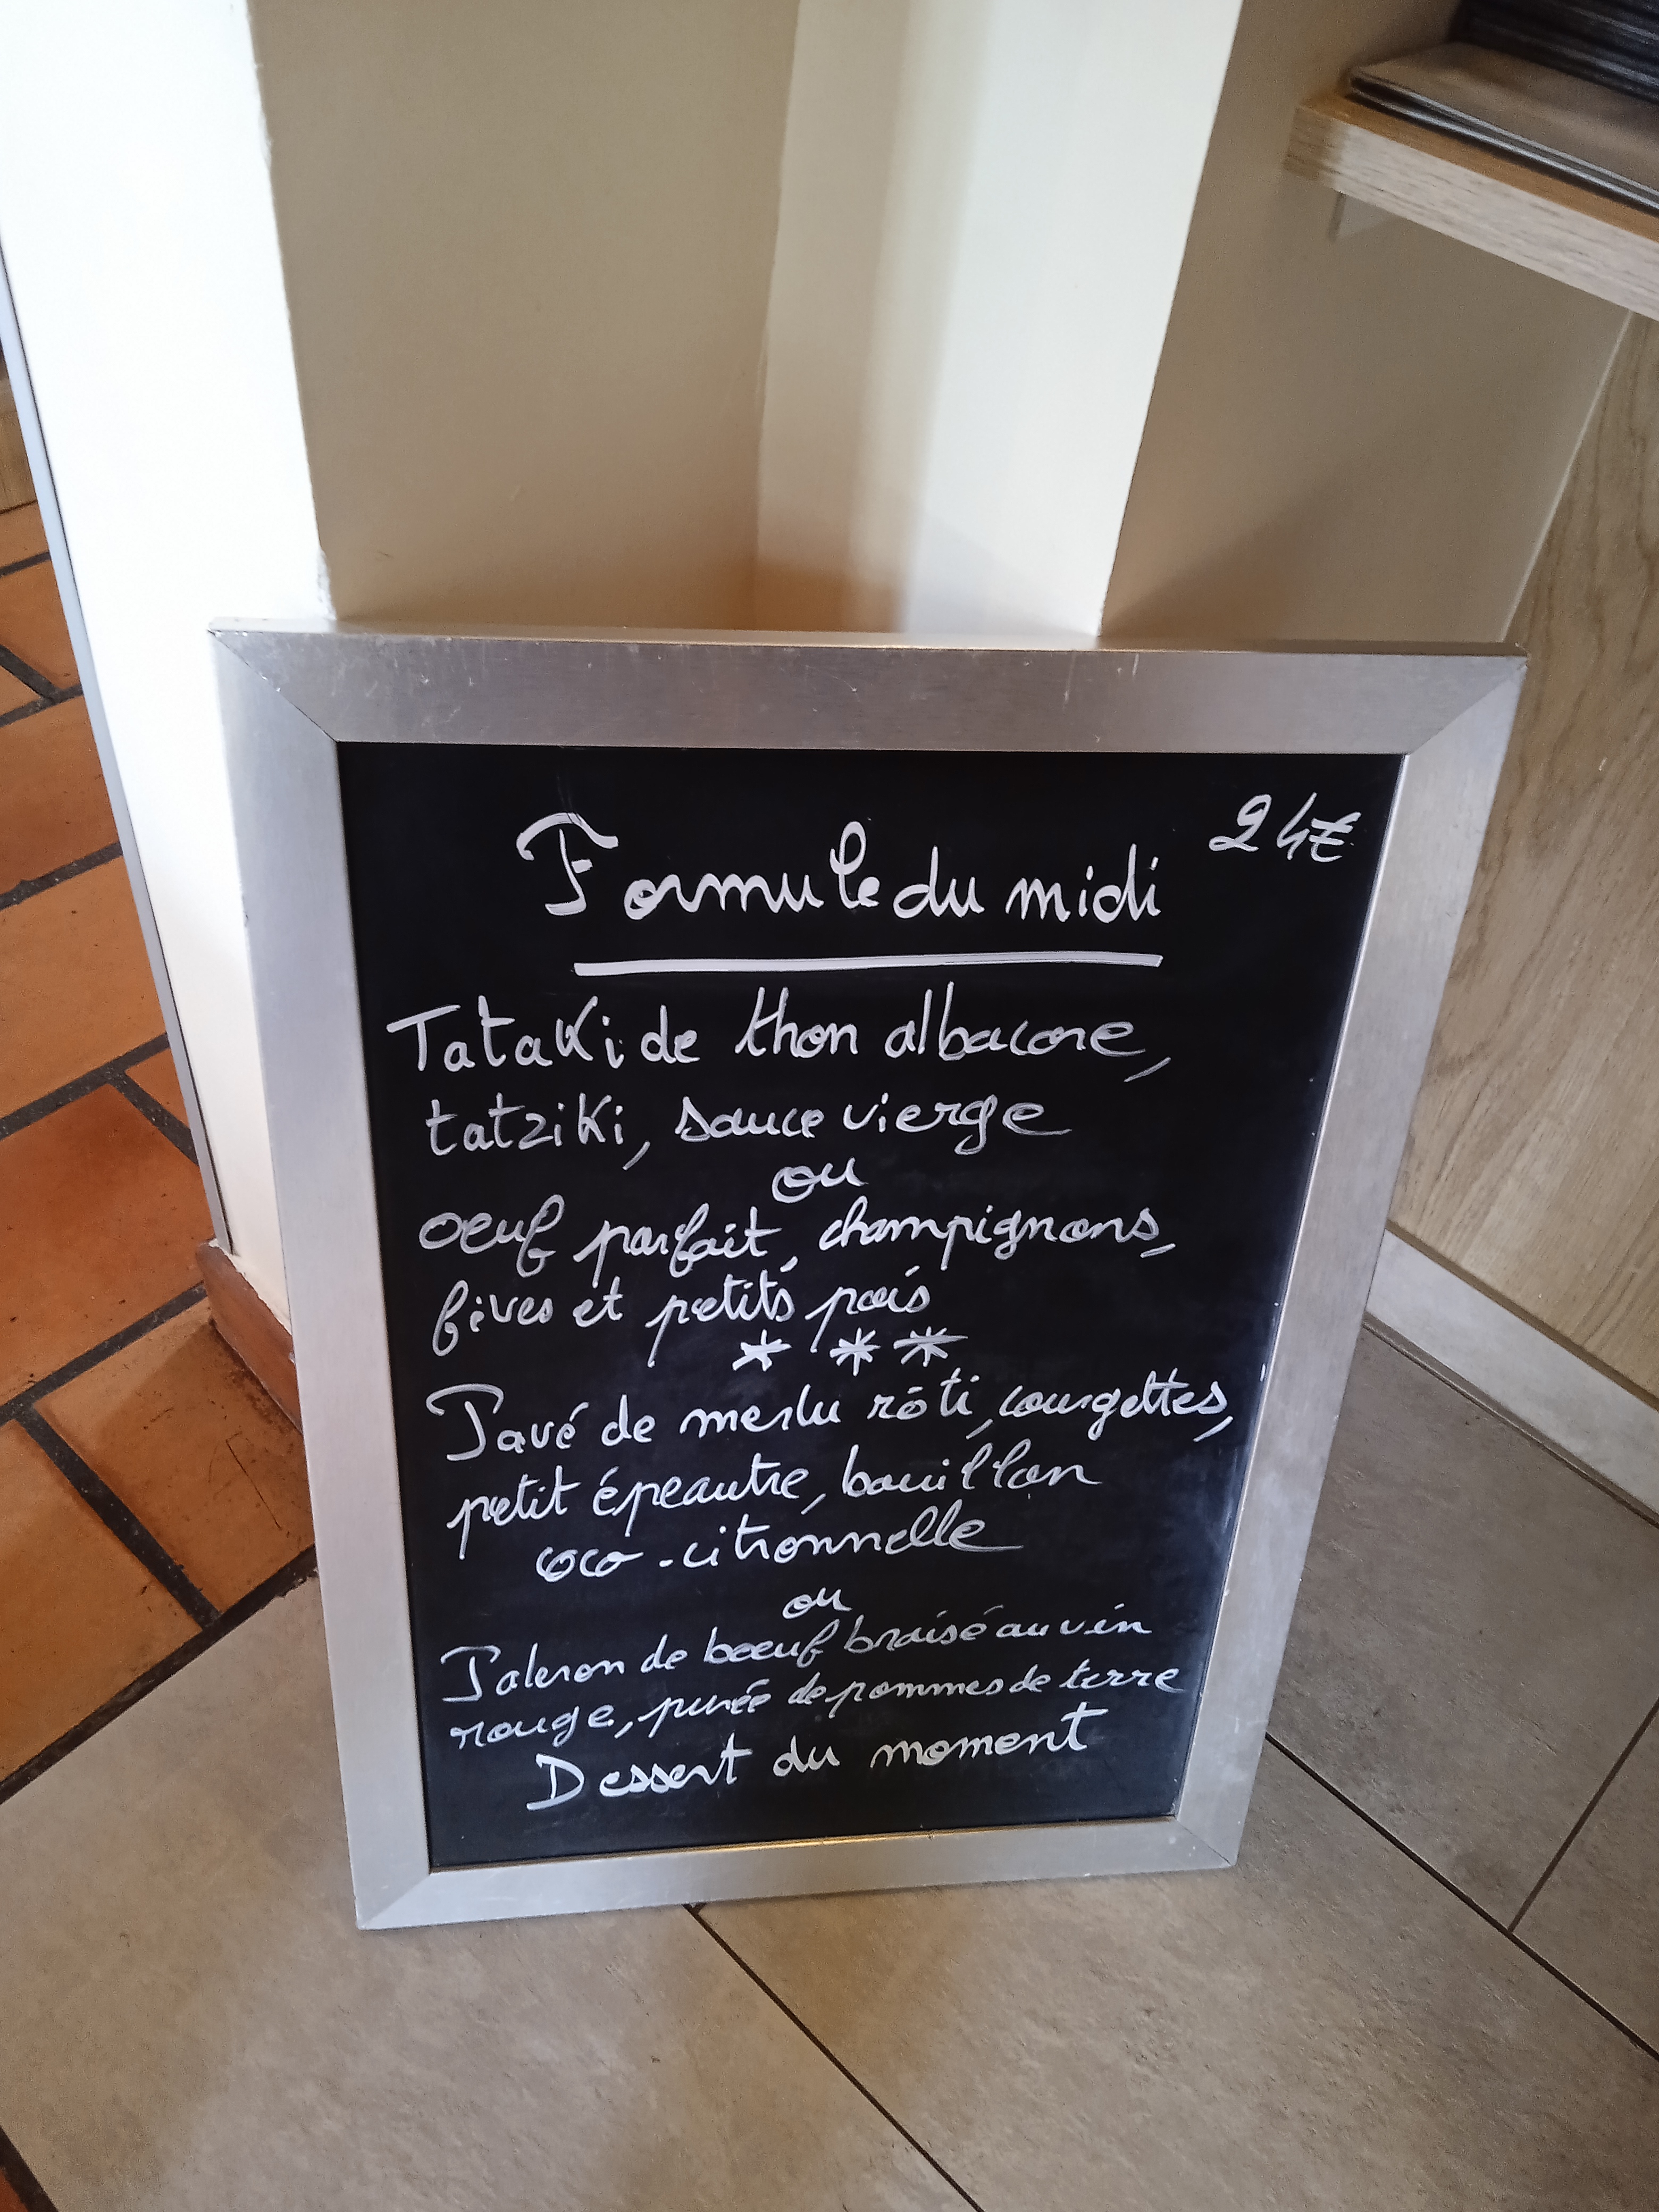 Formule du midi 24€
Tataki de thon albacore,
tatziki, sauce vierge
ou
oeuf parfait, champignons,
fèves et petits pois
* * *
Pavé de merlu rôti, courgettes,
petit épeautre, bouillon
coco-citronnelle
ou
Paleron de boeuf braisé au vin
rouge, purée de pommes de terre
Dessert du moment